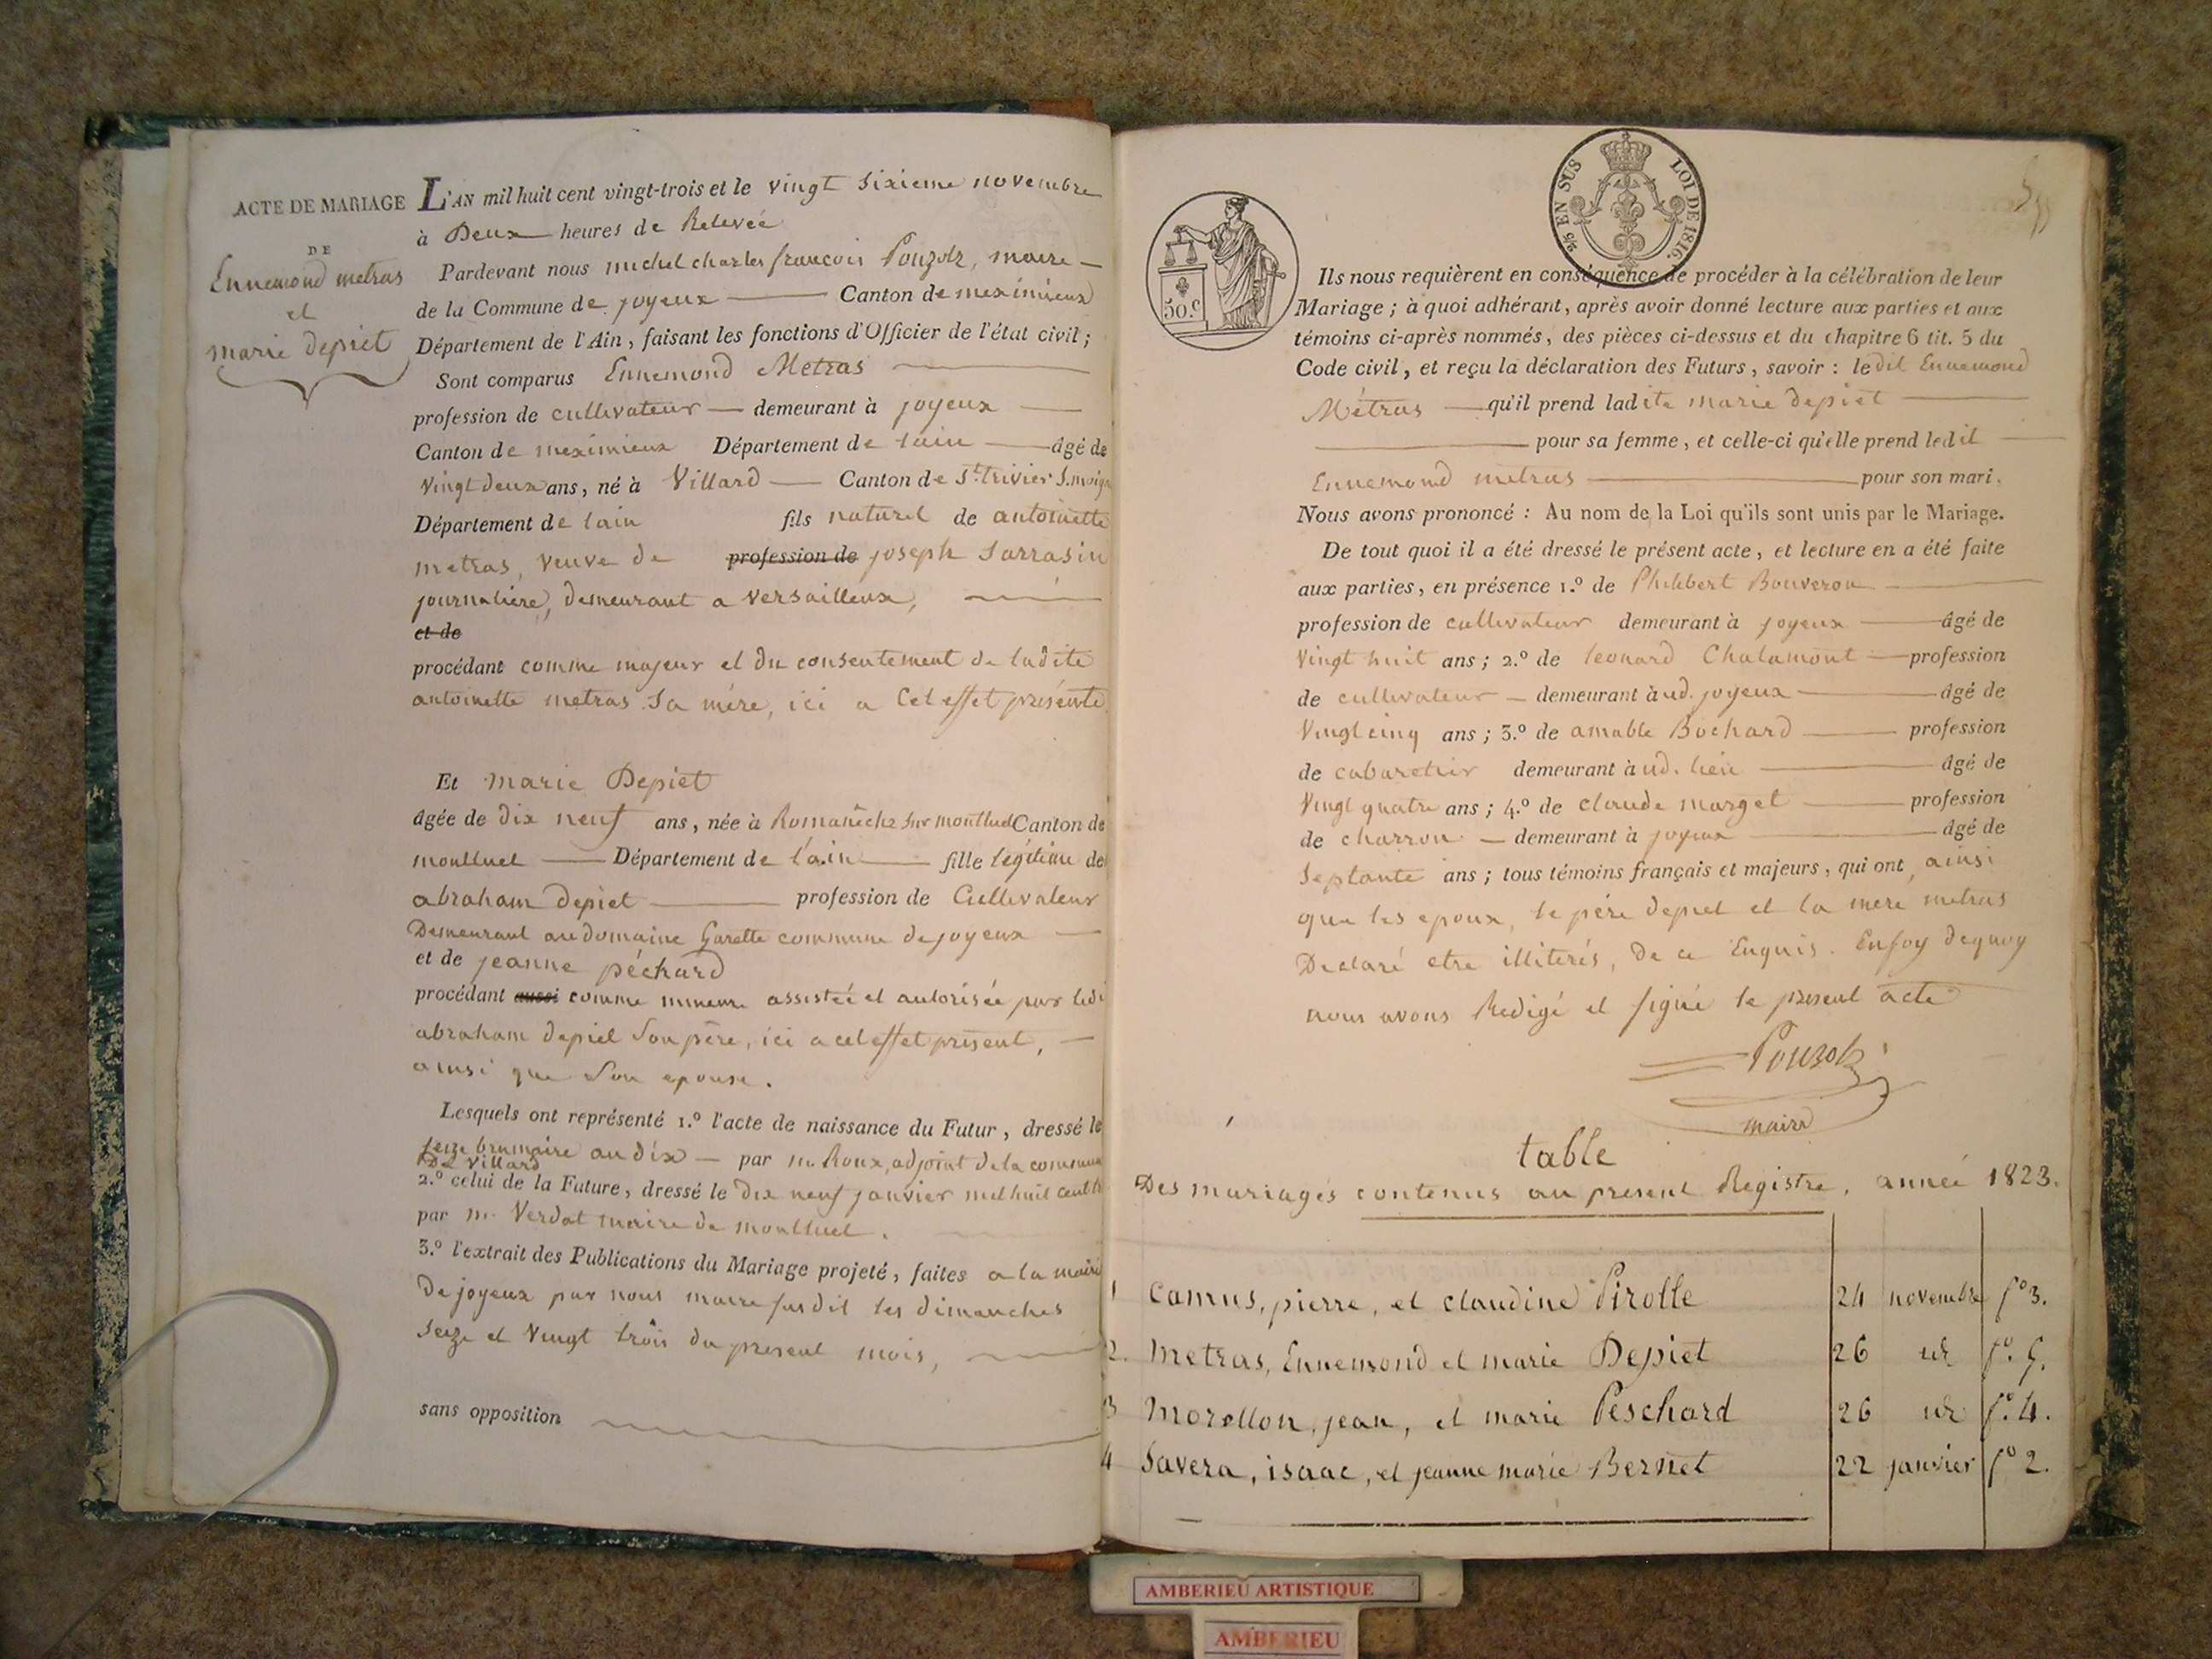 ACTE DE MARIAGE
DE
Ennemond metras
et
marie depiet
L'AN mil huit cent vingt-trois et le vingt sixieme novembre
à Deux heures de Relevée
Pardevant nous michel charles françois Pouzolz, maire
de la Commune de joyeux Canton de meximieux
Département de l'Ain, faisant les fonctions d'Officier de l'état civil;
Sont comparus Ennemond Metras
profession de cultivateur demeurant à joyeux
Canton de meximieux Département de lain âgé de
vingt deux ans, né à Villard Canton de St. trivier S. moign
Département de lain fils naturel de antoinette
metras, veuve de profession de joseph Sarrasin
journaliere, demeurant a versailleux,
et de
procédant comme majeur et du consentement de ladite
antoinette metras Sa mère, ici a Cet effet présente
Et marie Depiet
âgée de dix neuf ans, née à Romanêche sur montluel Canton de
montluel Département de l'ain fille légitime de
abraham depiet profession de Cultivateur
Demeurant au domaine Garette commune de joyeux
et de jeanne péchard
procédant aussi comme mineure assistée et autorisée par ledi
abraham depiet Son père, ici a cet effet présent,
ainsi que Son epouse.
Lesquels ont représenté 1.º l'acte de naissance du Futur, dressé le
seize brumaire an dix par m. Roux, adjoint de la commune
De Villard
2.º celui de la Future, dressé le dix neuf janvier mil huit cent
par m. Verdat maire de montluel.
3.º l'extrait des Publications du Mariage projeté, faites a la mairi
De joyeux par nous maire susdit les dimanches
seize et vingt trois du present mois,
sans opposition
50.c
2/5 EN SUS LOI DE 1816.
Ils nous requièrent en conséquence de procéder à la célébration de leur
Mariage; à quoi adhérant, après avoir donné lecture aux parties et aux
témoins ci-après nommés, des pièces ci-dessus et du chapitre 6 tit. 5 du
Code civil, et reçu la déclaration des Futurs, savoir: le dit Ennemond
Métras qu'il prend ladite marie depiet
pour sa femme, et celle-ci qu'elle prend ledit
Ennemond metras pour son mari.
Nous avons prononcé: Au nom de la Loi qu'ils sont unis par le Mariage.
De tout quoi il a été dressé le présent acte, et lecture en a été faite
aux parties, en présence 1.º de Philibert Bouveron
profession de cultivateur demeurant à joyeux âgé de
Vingt huit ans; 2.º de leonard Chalamont profession
de cultivateur demeurant à ud. joyeux âgé de
Vingt cinq ans; 3.º de amable Bochard profession
de cabaretier demeurant à ud. lieu âgé de
Vingt quatre ans; 4.º de claude marget profession
de charron demeurant à joyeux âgé de
Septante ans; tous témoins français et majeurs, qui ont, ainsi
que les epoux, le père depiet et la mere metras
Declaré etre illiterés, de ce Enquis. En foy de quoy
nous avons Redigé et signé le present acte
Pouzolz
maire
table
Des mariages contenus au present Registre, année 1823.
1 Camus, pierre, et claudine Pirolle 24 novembre fº 3.
2. Metras, Ennemond et marie Depiet 26 id fº. 5.
3 Morellon, jean, et marie Peschard 26 id fº. 4.
4 Savera, isaac, et jeanne marie Bernet 22 janvier fº 2.
AMBERIEU ARTISTIQUE
AMBERIEU